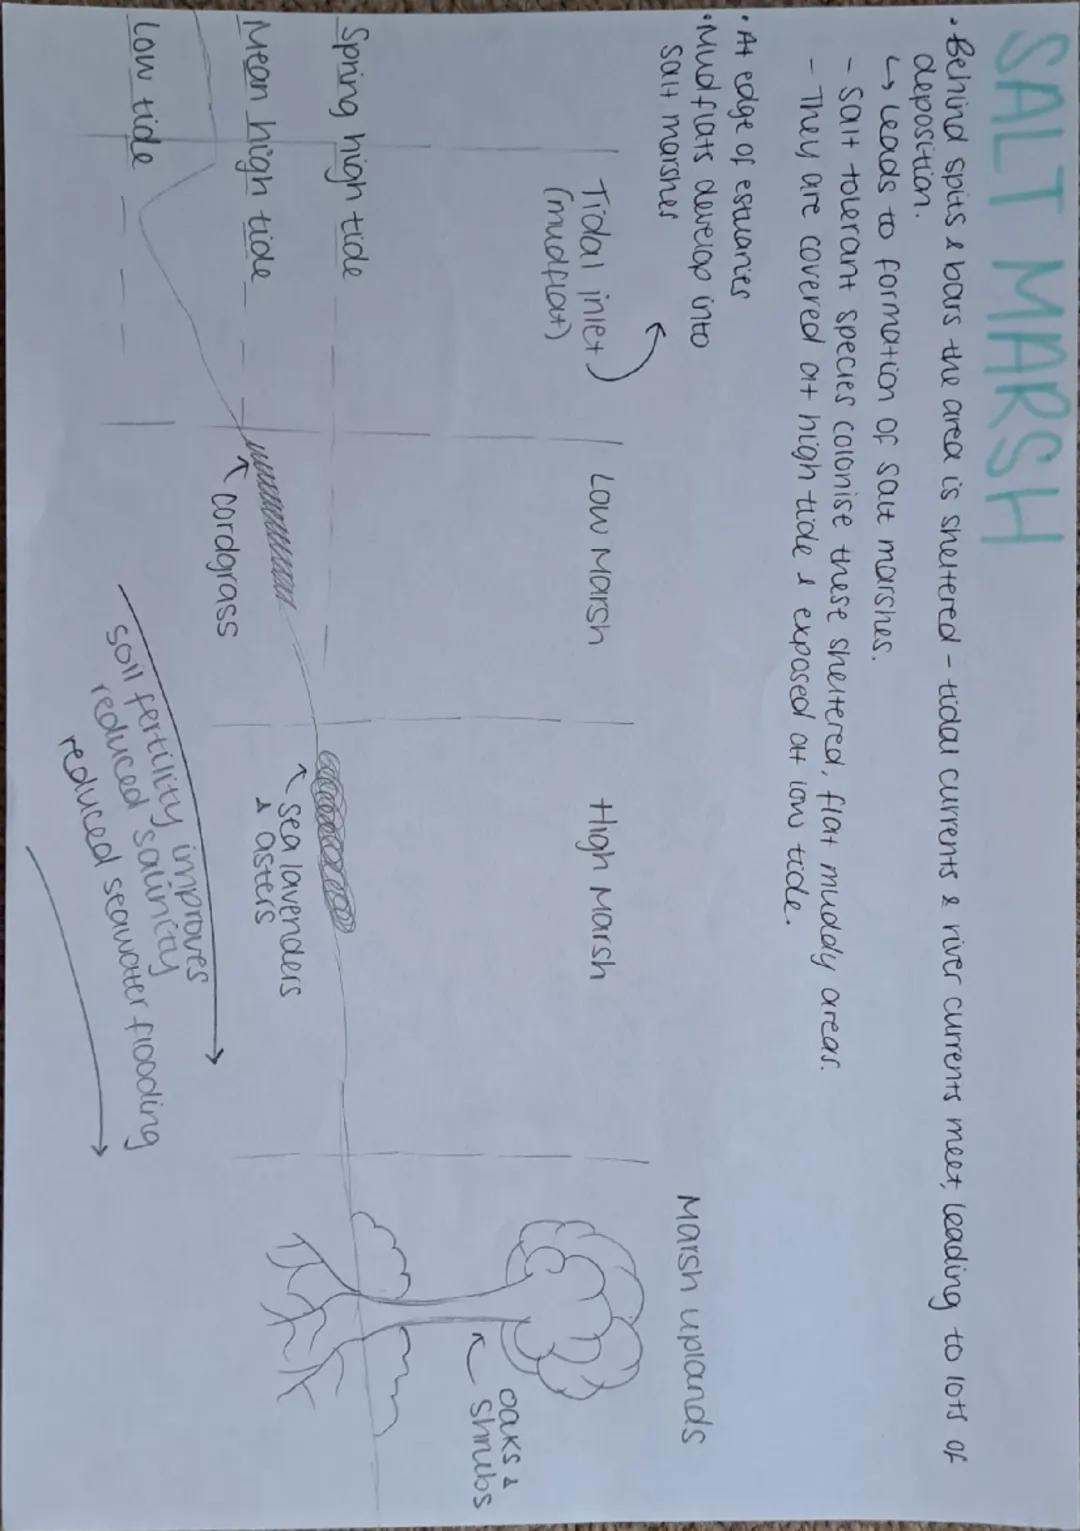 SALT MARSH
• Behind spits & bars the area is sheltered - tidal currents & river currents meet, leading to lots of
deposition.
↳ Leads to formation of salt marshes.
- Salt tolerant species colonise these sheltered, flat muddy areas.
- They are covered at high tide & exposed at low tide.
• At edge of estuaries
• Mudflats develop into
salt marshes
Tidal inlet
(mudflat)
Low Marsh
High Marsh
Marsh uplands
Spring high tide
Mean high tide
Low tide
cordgrass
sea lavenders
& asters
oaks &
shrubs
soil fertility improves
reduced salinity
reduced seawater flooding